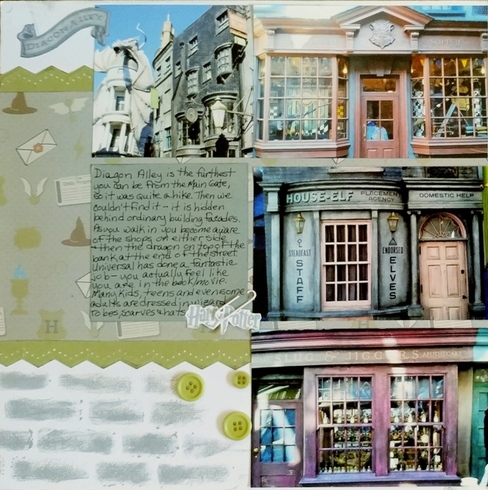 DIAGON ALLEY
Diagon Alley is the furthest
you can be from the Main Gate,
so it was quite a hike. Then we
couldn't find it - it is hidden
behind ordinary building facades.
As you walk in you become aware
of the shops on either side
then the dragon on top of the
bank at the end of the street
Universal has done a fantastic
job - you actually feel like
you are in the book/movie.
Many kids, teens and even some
adults are dressed in wizard
robes, scarves & hats
Harry Potter
H
HOUSE-ELF PLACEMENT AGENCY
DOMESTIC HELP
BREAKFAST STAFF
ENDORSED ELVES
SLUG & JIGGERS APOTHECARY